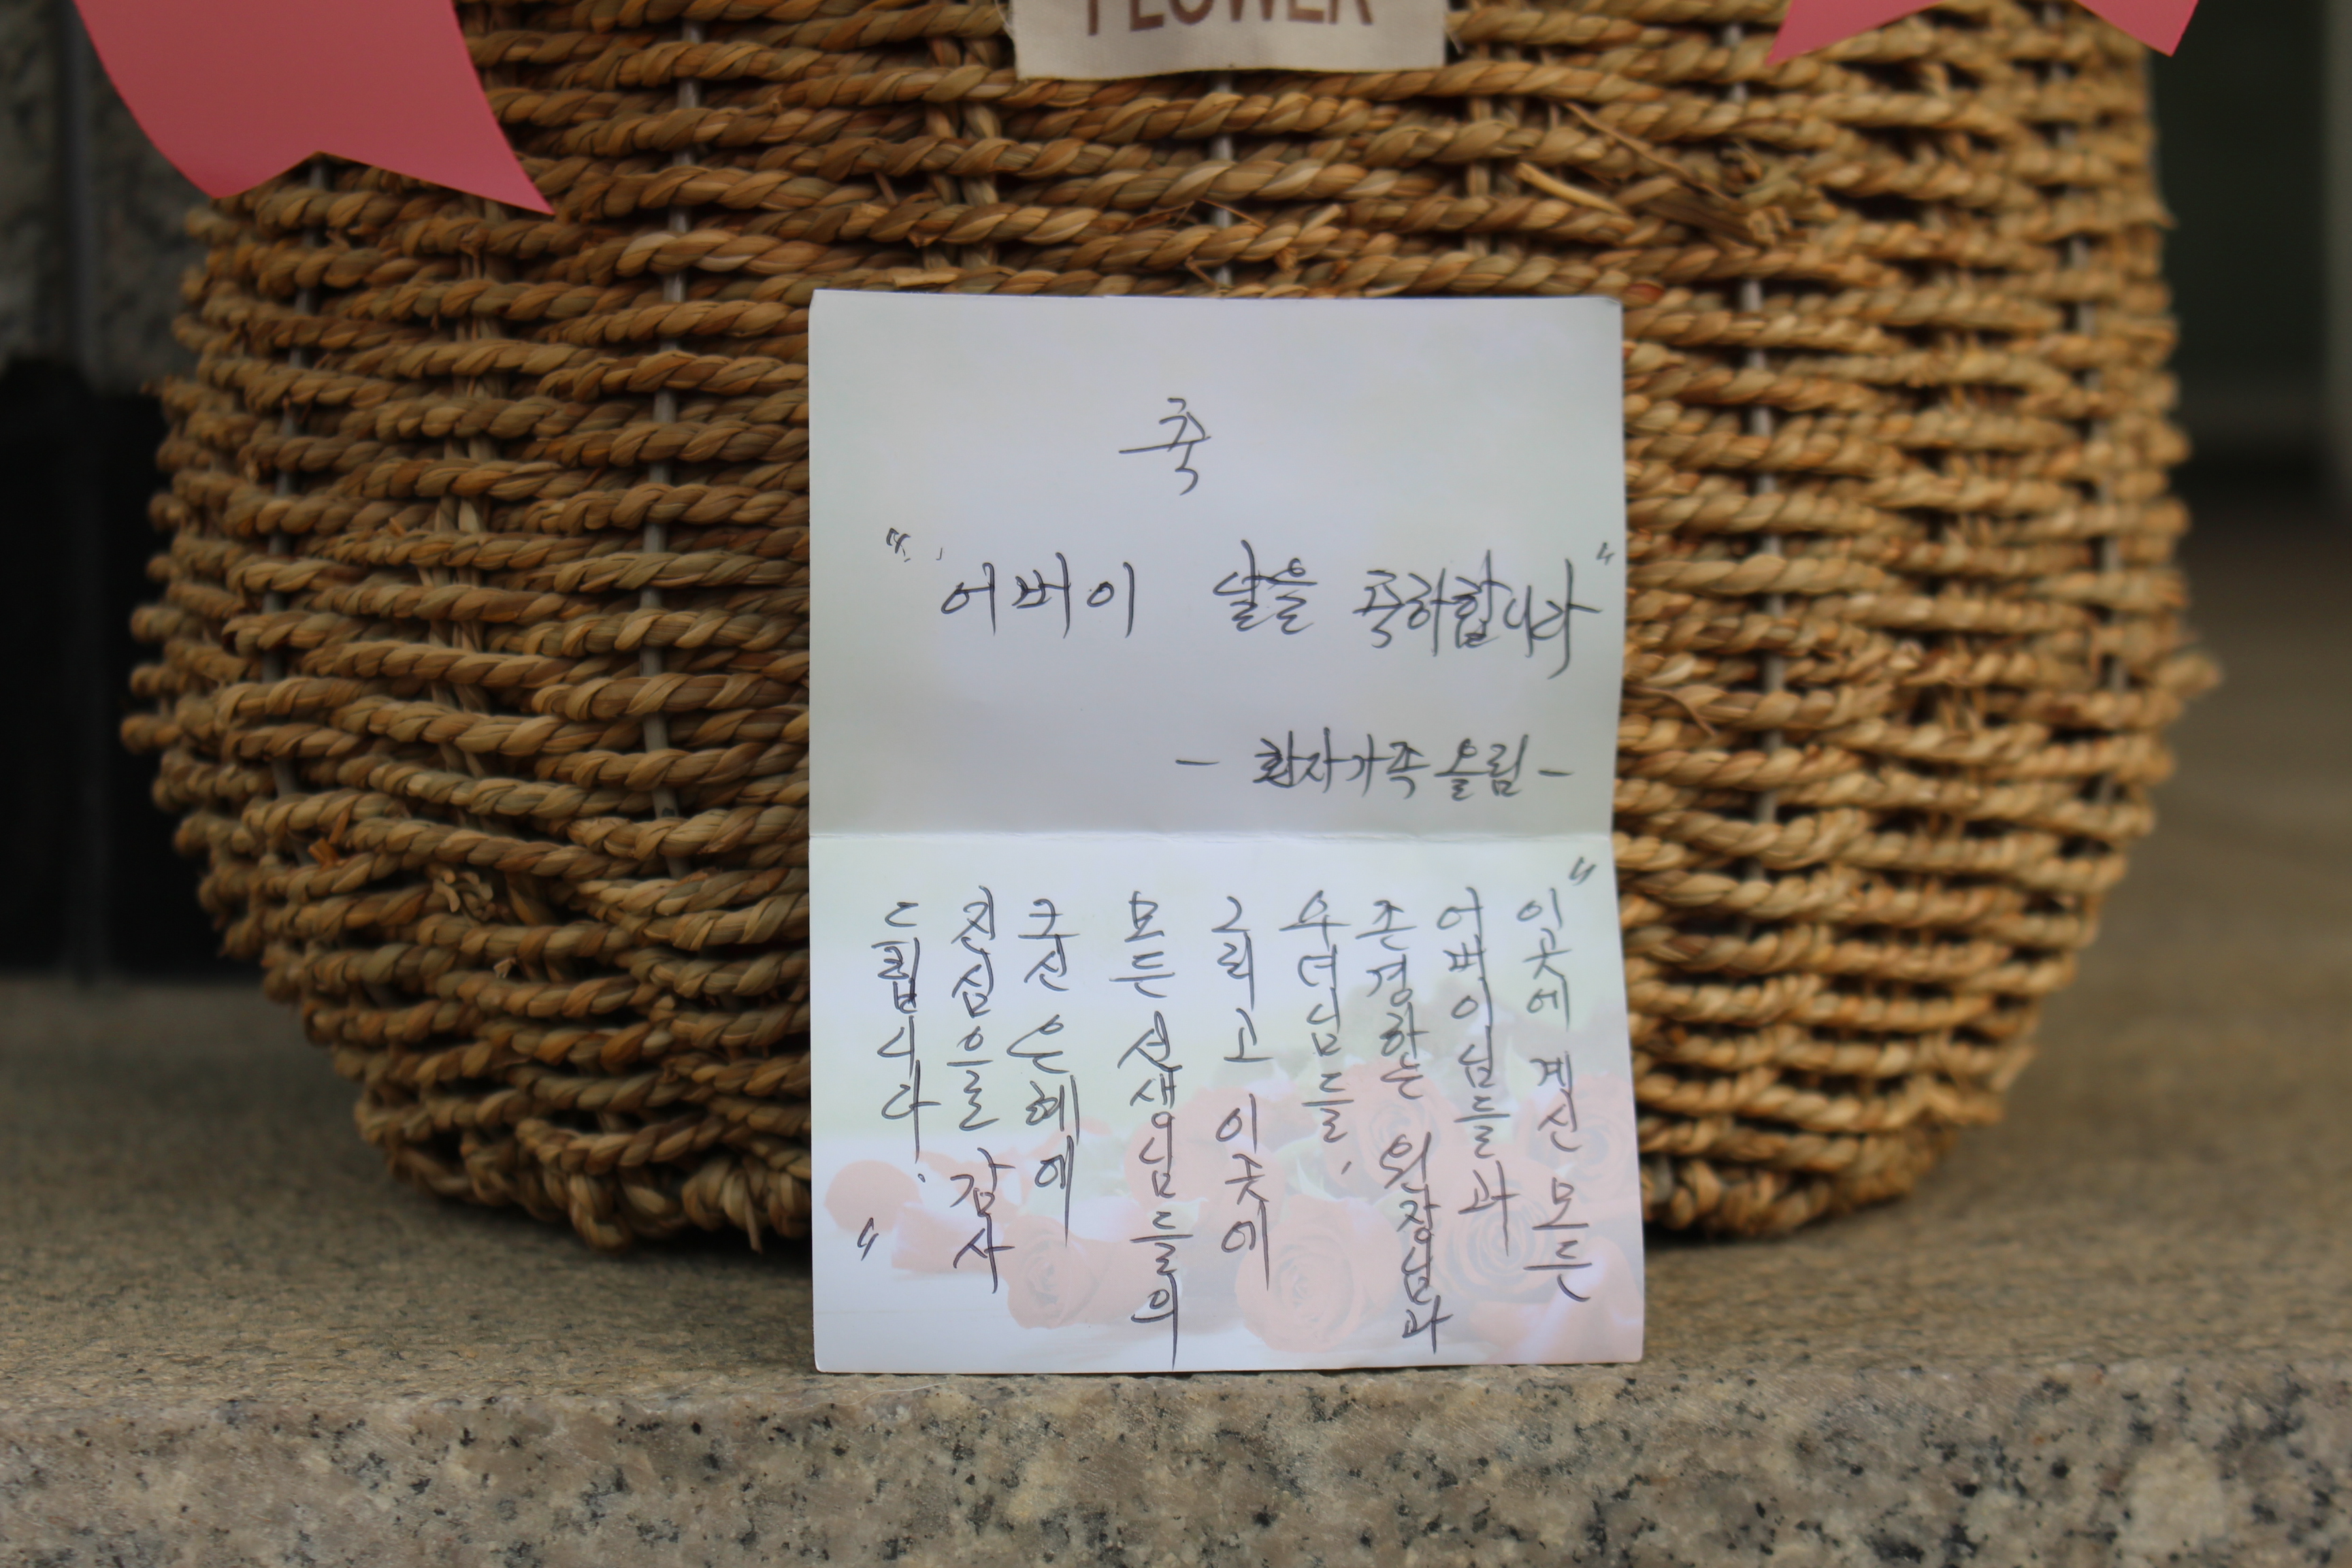 FLOWER
축
"어버이 날을 축하합니다"
- 환자가족 올림 -
"이곳에 계신 모든
어버이님들과
존경하는 원장님과
우려님들,
그리고 이곳에
모든 선생님들의
크신 은혜에
진심으로 감사
드립니다."